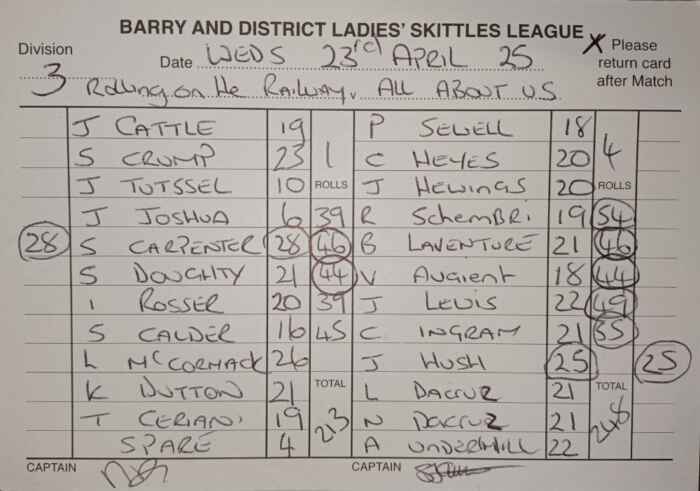 BARRY AND DISTRICT LADIES' SKITTLES LEAGUE
Division Date WEDS 23rd APRIL 25 X Please return card after Match
3 Rolling on the Railway v ALL ABOUT US
J CATTLE 19 P SEWELL 18
S CRUMP 23 1 C HEYES 20 4
J TUTSSEL 10 ROLLS J HEWINGS 20 ROLLS
J JOSHUA 6 39 R SCHEMBRI 19 54
28 S CARPENTER 28 46 B LAVENTURE 21 46
S DOUGHTY 21 44 V AUGIENT 18 44
I ROSSER 20 39 J LEWIS 22 49
S CALDER 16 45 C INGRAM 21 55
L MCCORMACK 26 J HUSH 25 25
K DUTTON 21 TOTAL L DACRUZ 21 TOTAL
T CERIANI 19 213 N DACRUZ 21 248
SPARE 4 A UNDERHILL 22
CAPTAIN CAPTAIN